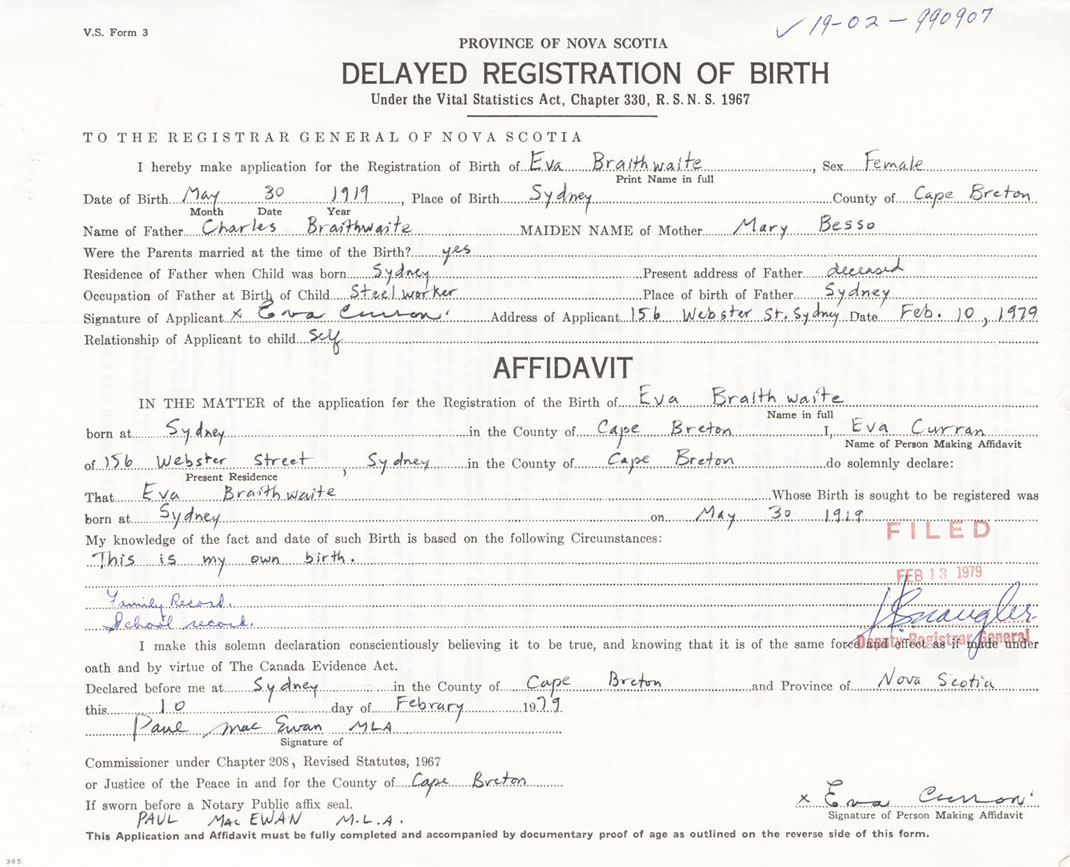 V.S. Form 3
✓ 19-02-990907
PROVINCE OF NOVA SCOTIA
DELAYED REGISTRATION OF BIRTH
Under the Vital Statistics Act, Chapter 330, R. S. N. S. 1967
TO THE REGISTRAR GENERAL OF NOVA SCOTIA
I hereby make application for the Registration of Birth of Eva Braithwaite, Sex Female
Print Name in full
Date of Birth May 30 1919, Place of Birth Sydney County of Cape Breton
Month Date Year
Name of Father Charles Braithwaite MAIDEN NAME of Mother Mary Besso
Were the Parents married at the time of the Birth? yes
Residence of Father when Child was born Sydney Present address of Father deceased
Occupation of Father at Birth of Child Steelworker Place of birth of Father Sydney
Signature of Applicant x Eva Curron Address of Applicant 156 Webster St. Sydney Date Feb. 10, 1979
Relationship of Applicant to child Self
AFFIDAVIT
IN THE MATTER of the application for the Registration of the Birth of Eva Braithwaite
Name in full
born at Sydney in the County of Cape Breton I, Eva Curran
Name of Person Making Affidavit
of 156 Webster Street, Sydney in the County of Cape Breton do solemnly declare:
Present Residence
That Eva Braithwaite Whose Birth is sought to be registered was
born at Sydney on May 30 1919
FILED
My knowledge of the fact and date of such Birth is based on the following Circumstances:
This is my own birth.
FEB 13 1979
Family Record.
School record.
Deputy Registrar General
I make this solemn declaration conscientiously believing it to be true, and knowing that it is of the same force and effect as if made under
oath and by virtue of The Canada Evidence Act.
Declared before me at Sydney in the County of Cape Breton and Province of Nova Scotia
this 10 day of Febrary 1979
Paul Mac Ewan MLA
Signature of
Commissioner under Chapter 208, Revised Statutes, 1967
or Justice of the Peace in and for the County of Cape Breton
If sworn before a Notary Public affix seal.
x Eva Curron
PAUL MacEWAN M.L.A.
Signature of Person Making Affidavit
This Application and Affidavit must be fully completed and accompanied by documentary proof of age as outlined on the reverse side of this form.
385